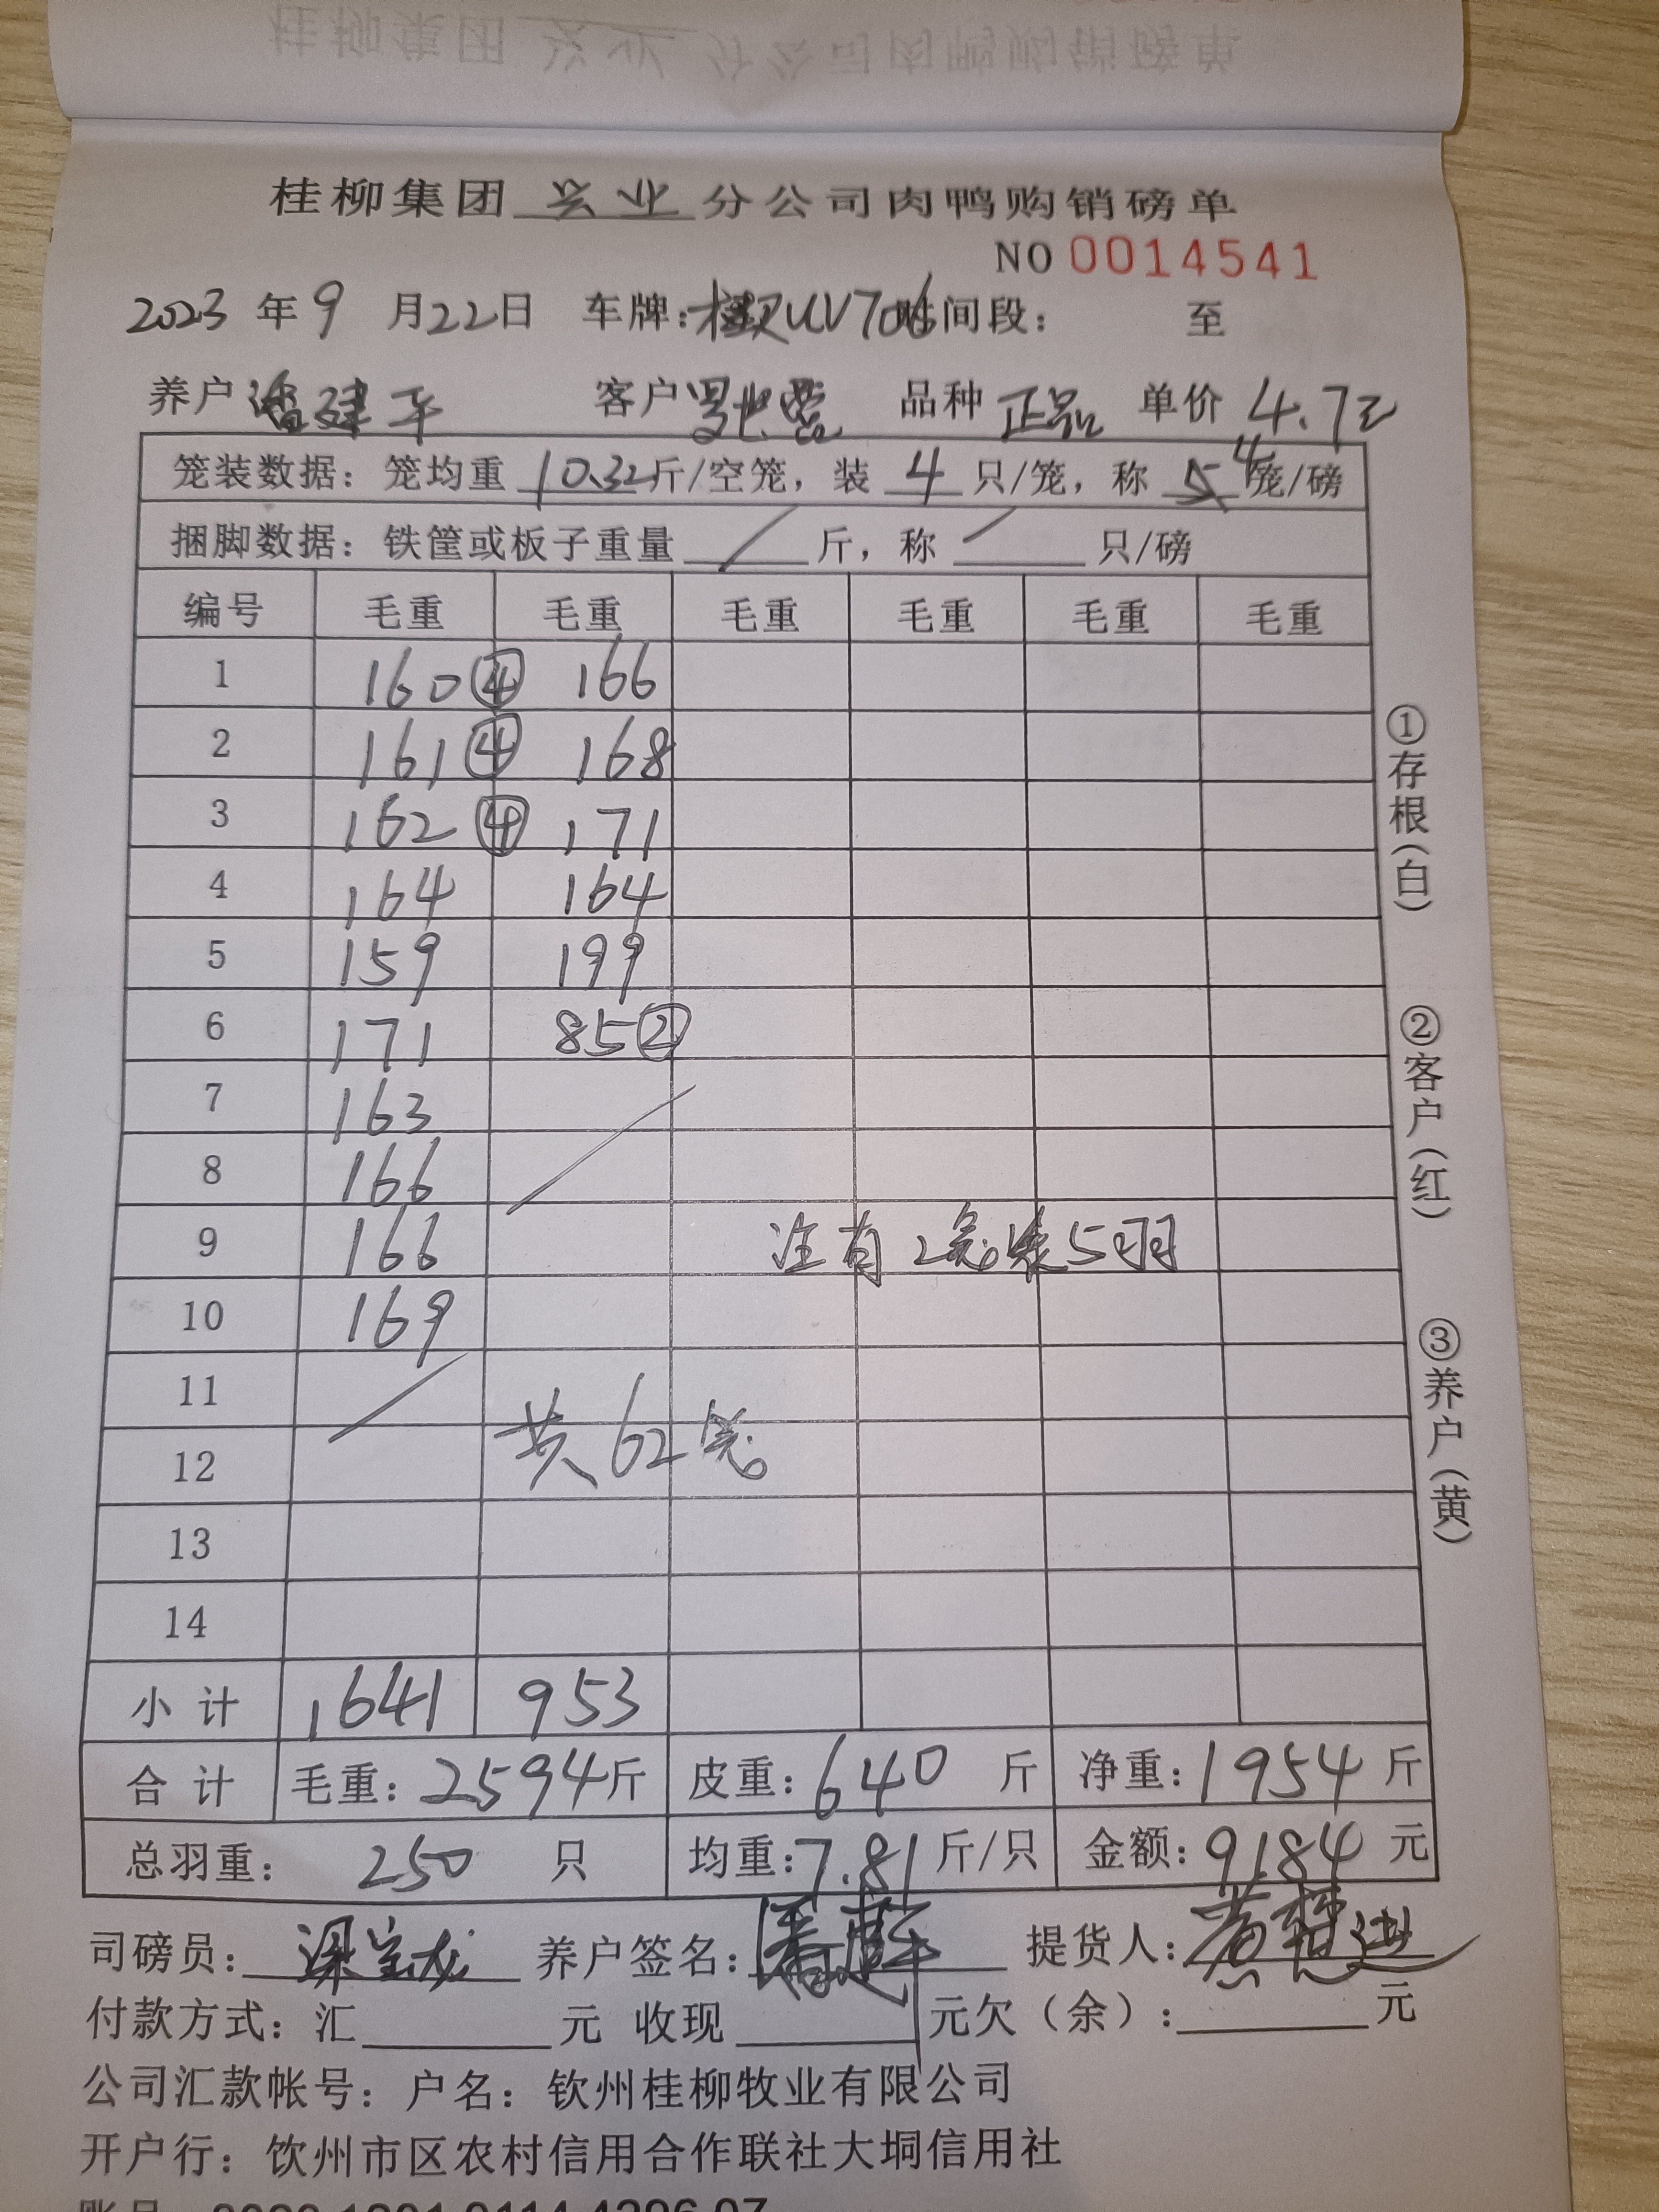 桂柳集团 兴业 分公司肉鸭购销磅单
NO 0014541
2023 年 9 月 22 日 车牌: UV706 时间段: 至
养户 潘建平 客户 品种 正品 单价 4.7元
笼装数据: 笼均重 10.32 斤/空笼, 装 4 只/笼, 称 4 笼/磅
捆脚数据: 铁筐或板子重量 / 斤, 称 / 只/磅
编号 毛重 毛重 毛重 毛重 毛重 毛重
1 160 ④ 166
2 161 ④ 168
3 162 ④ 171
4 164 164
5 159 199
6 171 85 ②
7 163
8 166
9 166 注有2笼装5羽
10 169
11
12 共62笼
13
14
小计 1641 953
合计 毛重: 2594 斤 皮重: 640 斤 净重: 1954 斤
总羽重: 250 只 均重: 7.81 斤/只 金额: 9184 元
司磅员: 梁宝龙 养户签名: 潘建平 提货人: 黄
付款方式: 汇 元 收现 元欠(余): 元
公司汇款帐号: 户名: 钦州桂柳牧业有限公司
开户行: 钦州市区农村信用合作联社大垌信用社
①存根(白)
②客户(红)
③养户(黄)